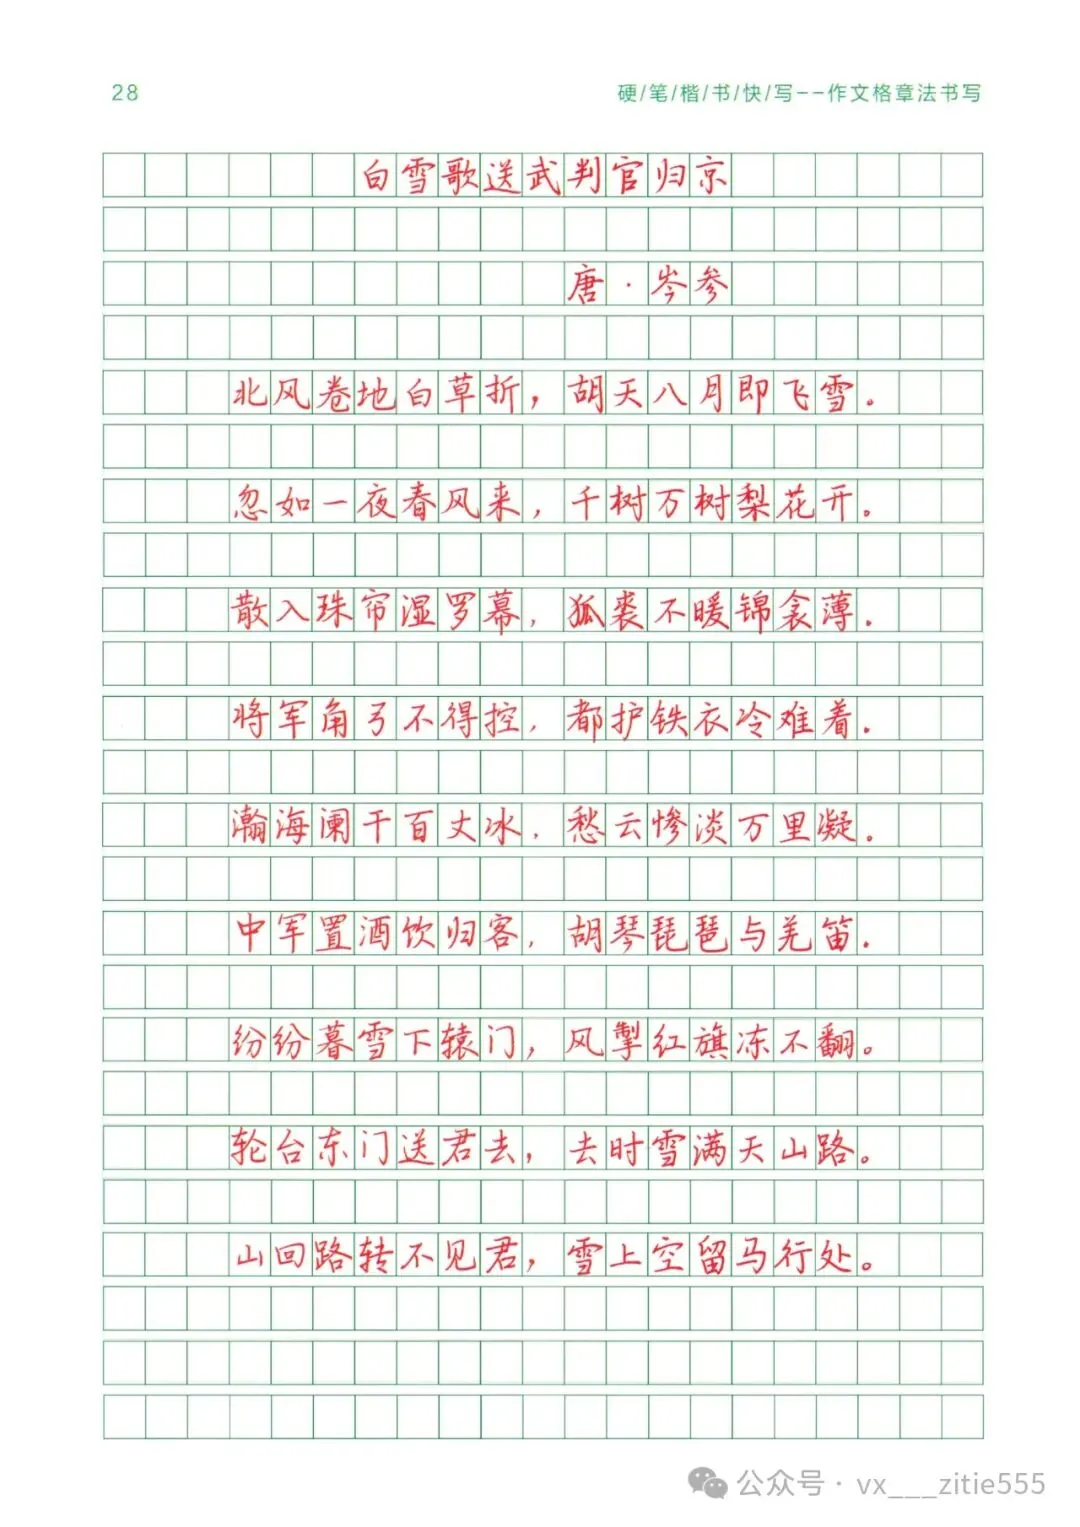 28 硬/笔/楷/书/快/写--作文格章法书写
白雪歌送武判官归京
唐·岑参
北风卷地白草折，胡天八月即飞雪。
忽如一夜春风来，千树万树梨花开。
散入珠帘湿罗幕，狐裘不暖锦衾薄。
将军角弓不得控，都护铁衣冷难着。
瀚海阑干百丈冰，愁云惨淡万里凝。
中军置酒饮归客，胡琴琵琶与羌笛。
纷纷暮雪下辕门，风掣红旗冻不翻。
轮台东门送君去，去时雪满天山路。
山回路转不见君，雪上空留马行处。
公众号·vx___zitie555